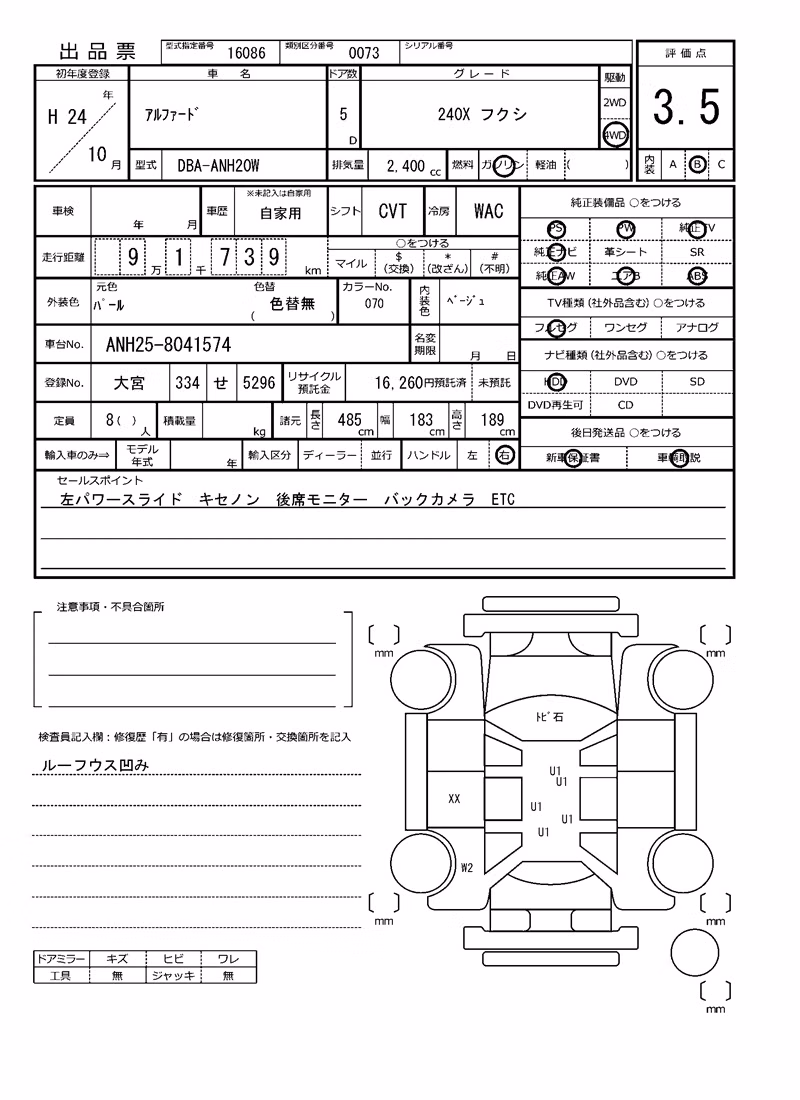 出品票 型式指定番号 16086 類別区分番号 0073 シリアル番号
評価点
3.5
内装 A B C
初年度登録 車名 ドア数 グレード 駆動
H 24 年 10 月 アルファード 5 D 240X フクシ 2WD
4WD
型式 DBA-ANH20W 排気量 2,400 cc 燃料 ガソリン 軽油 ( )
車検 年 月 車歴 ※未記入は自家用 自家用 シフト CVT 冷房 WAC
走行距離 9 万 1 千 7 3 9 km ○をつける
マイル $ (交換) * (改ざん) # (不明)
外装色 元色 パール 色替 色替無 ( ) カラーNo. 070 内装色 ベージュ
車台No. ANH25-8041574 名変期限 月 日
登録No. 大宮 334 せ 5296 リサイクル預託金 16,260円預託済 未預託
定員 8( ) 人 積載量 kg 諸元 長さ 485 cm 幅 183 cm 高さ 189 cm
輸入車のみ⇒ モデル年式 年 輸入区分 ディーラー 並行 ハンドル 左 右
純正装備品 ○をつける
PS PW 純正TV
純正ナビ 革シート SR
純正AW エアB ABS
TV種類(社外品含む)○をつける
フルセグ ワンセグ アナログ
ナビ種類(社外品含む)○をつける
HDD DVD SD
DVD再生可 CD
後日発送品 ○をつける
新車保証書 車輌取説
セールスポイント
左パワースライド キセノン 後席モニター バックカメラ ETC
注意事項・不具合箇所
検査員記入欄：修復歴「有」の場合は修復箇所・交換箇所を記入
ルーフウス凹み
ドアミラー キズ ヒビ ワレ
工具 無 ジャッキ 無
mm
mm
トビ石
U1
U1
XX
U1
U1
U1
W2
mm
mm
mm